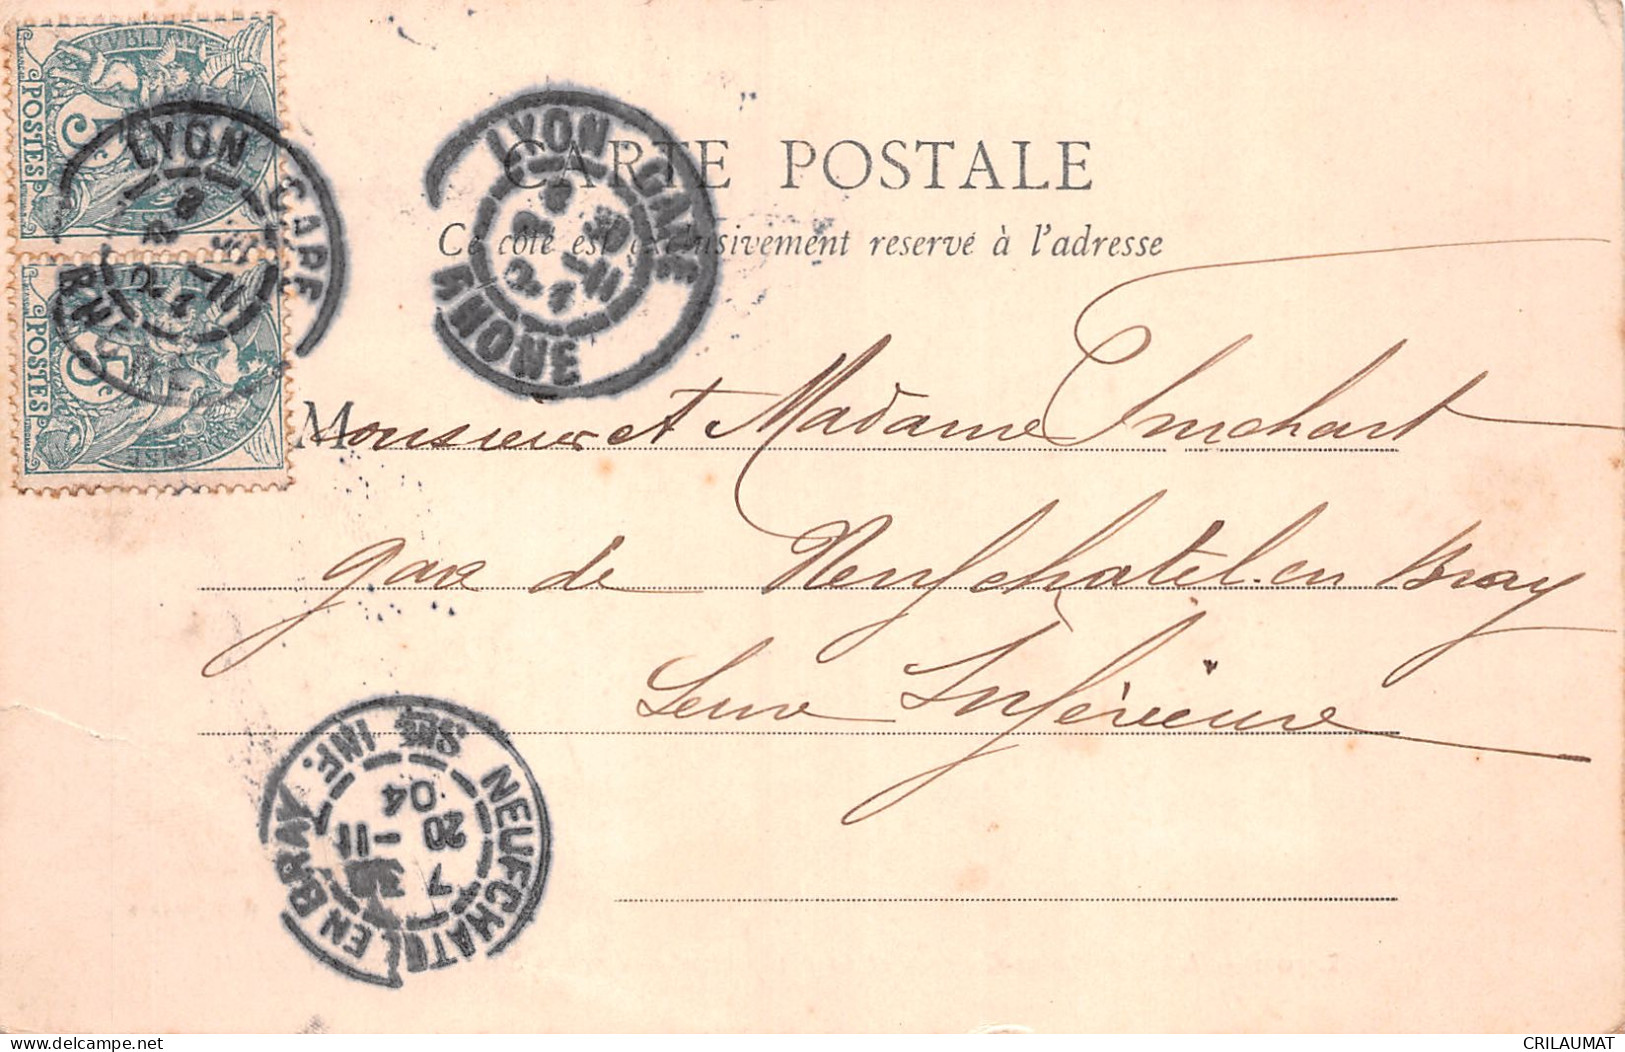 RÉPUBLIQUE
POSTES
5c
POSTES
5c
LYON GARE
RHONE
LYON GARE
RHONE
CARTE POSTALE
Ce côté est exclusivement reservé à l'adresse
Monsieur et Madame
gare de Neufchatel-en Bray
Seine Inférieure
NEUFCHATEL EN BRAY
INFRE
7 30
20 -11
04
CRILAUMAT